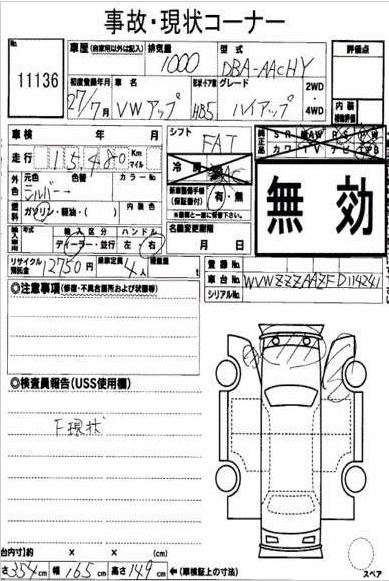 事故・現状コーナー
No. 11136
車歴 (自家用以外は記入) 排気量 1000 型式 DBA-AACHY 評価点
初度登録年月 27/7月 車名 VWアップ 形状・ドア数 HB5 グレード ハイアップ 2WD・4WD 内装
車検 年 月 シフト FAT 純正品 SR AW PS PW
走行 15,480 Km マイル 冷房 AC カワ TV
外色 元色 シルバー 色替 カラーNo. 新車整備手帳(保証書付) 有・無 無効
燃料 ガソリン・軽油・( ) 内装色 ※裏面と一緒にご覧下さい。
輸入車用 年式 輸入区分 ハンドル 名義変更期限
ディーラー・並行 左・右 月 日
リサイクル預託金 12750円 乗車定員 4人 積載量 t 登録No.
車台No. WVWZZZAAZFD114241
シリアルNo.
◎注意事項(修復・不具合箇所および状態等)
◎検査員報告(USS使用欄)
F現状
台内寸)約 × × (cm)
さ 354 cm 幅 165 cm 高さ 149 cm ←(車検証上の寸法)
スペア